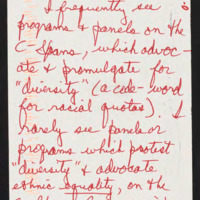 I frequently see
programs & panels on the
C-Spans, which advoc-
ate & promulgate for
"diversity" (a code-word
for racial quotas). I
rarely see panels or
programs which protest
"diversity" & advocate
ethnic equality, on the